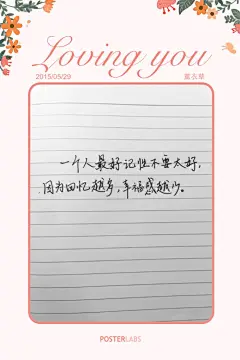 Loving you
2015/05/29
薰衣草
一个人最好记性不要太好，
因为回忆越多，幸福感越少。
POSTERLABS